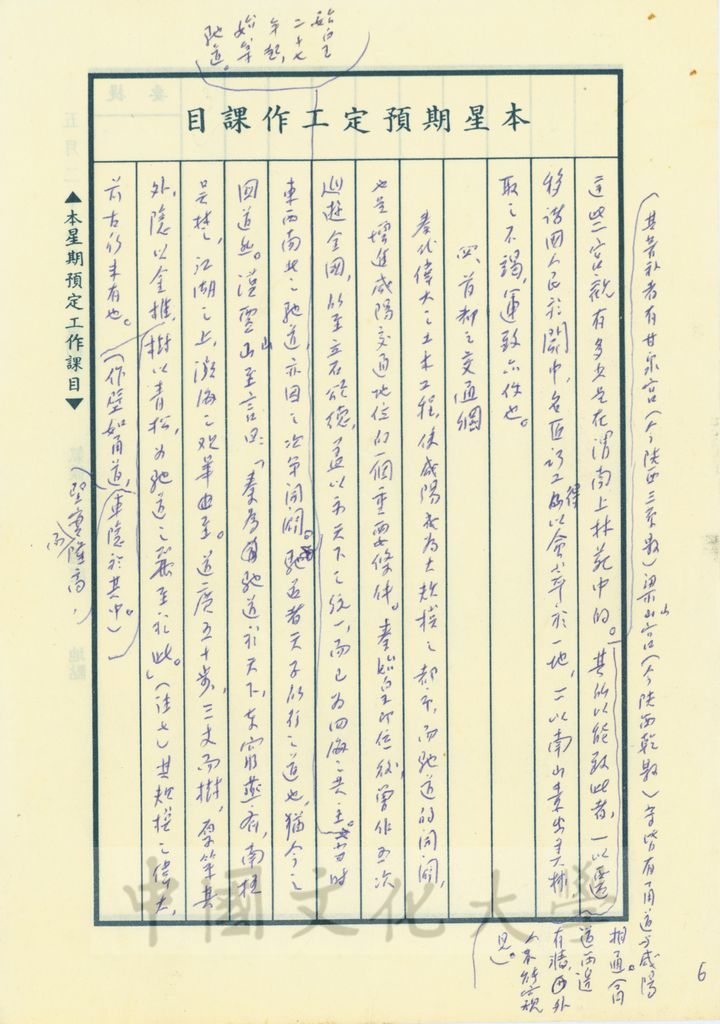 始皇二十七年起，始築馳道。
本星期預定工作課目
（其著於者有甘泉宮（今陝西三原縣）梁山宮（今陝西乾縣）等皆有甬道與咸陽相通（甬道兩邊有牆，外人不能窺見）。
這些宮觀有多少是在渭南上林苑中的。其所以能致此者，一以遷
移諸國人民於關中，名匠巧工得以會萃於一地，二以南山素出美材
取之不竭，運致亦便也。
四、首都之交通網
秦代偉大之土木工程，使咸陽成為大規模之都市，而馳道的開闢，
也是增進咸陽交通地位的一個重要條件。秦始皇即位後，曾作五次
巡遊全國，所至立石頌德，蓋以示天下之統一，而己為四海之共主。當時
東西南北之馳道，亦因之次第開闢。馳道者天子所行之道也，猶今之
國道然。漢賈山至言曰：「秦為馳道於天下，東窮燕齊，南極
吳楚，江湖之上，瀕海之觀畢至。道廣五十步，三丈而樹，厚築其
外，隱以金椎，樹以青松，為馳道之麗至於此。」（註七）其規模之偉大，
前古所未有也。（作壁如甬道，車隱於其中。）
堅實而隆高，
▲本星期預定工作課目▼
中國文化大學
6